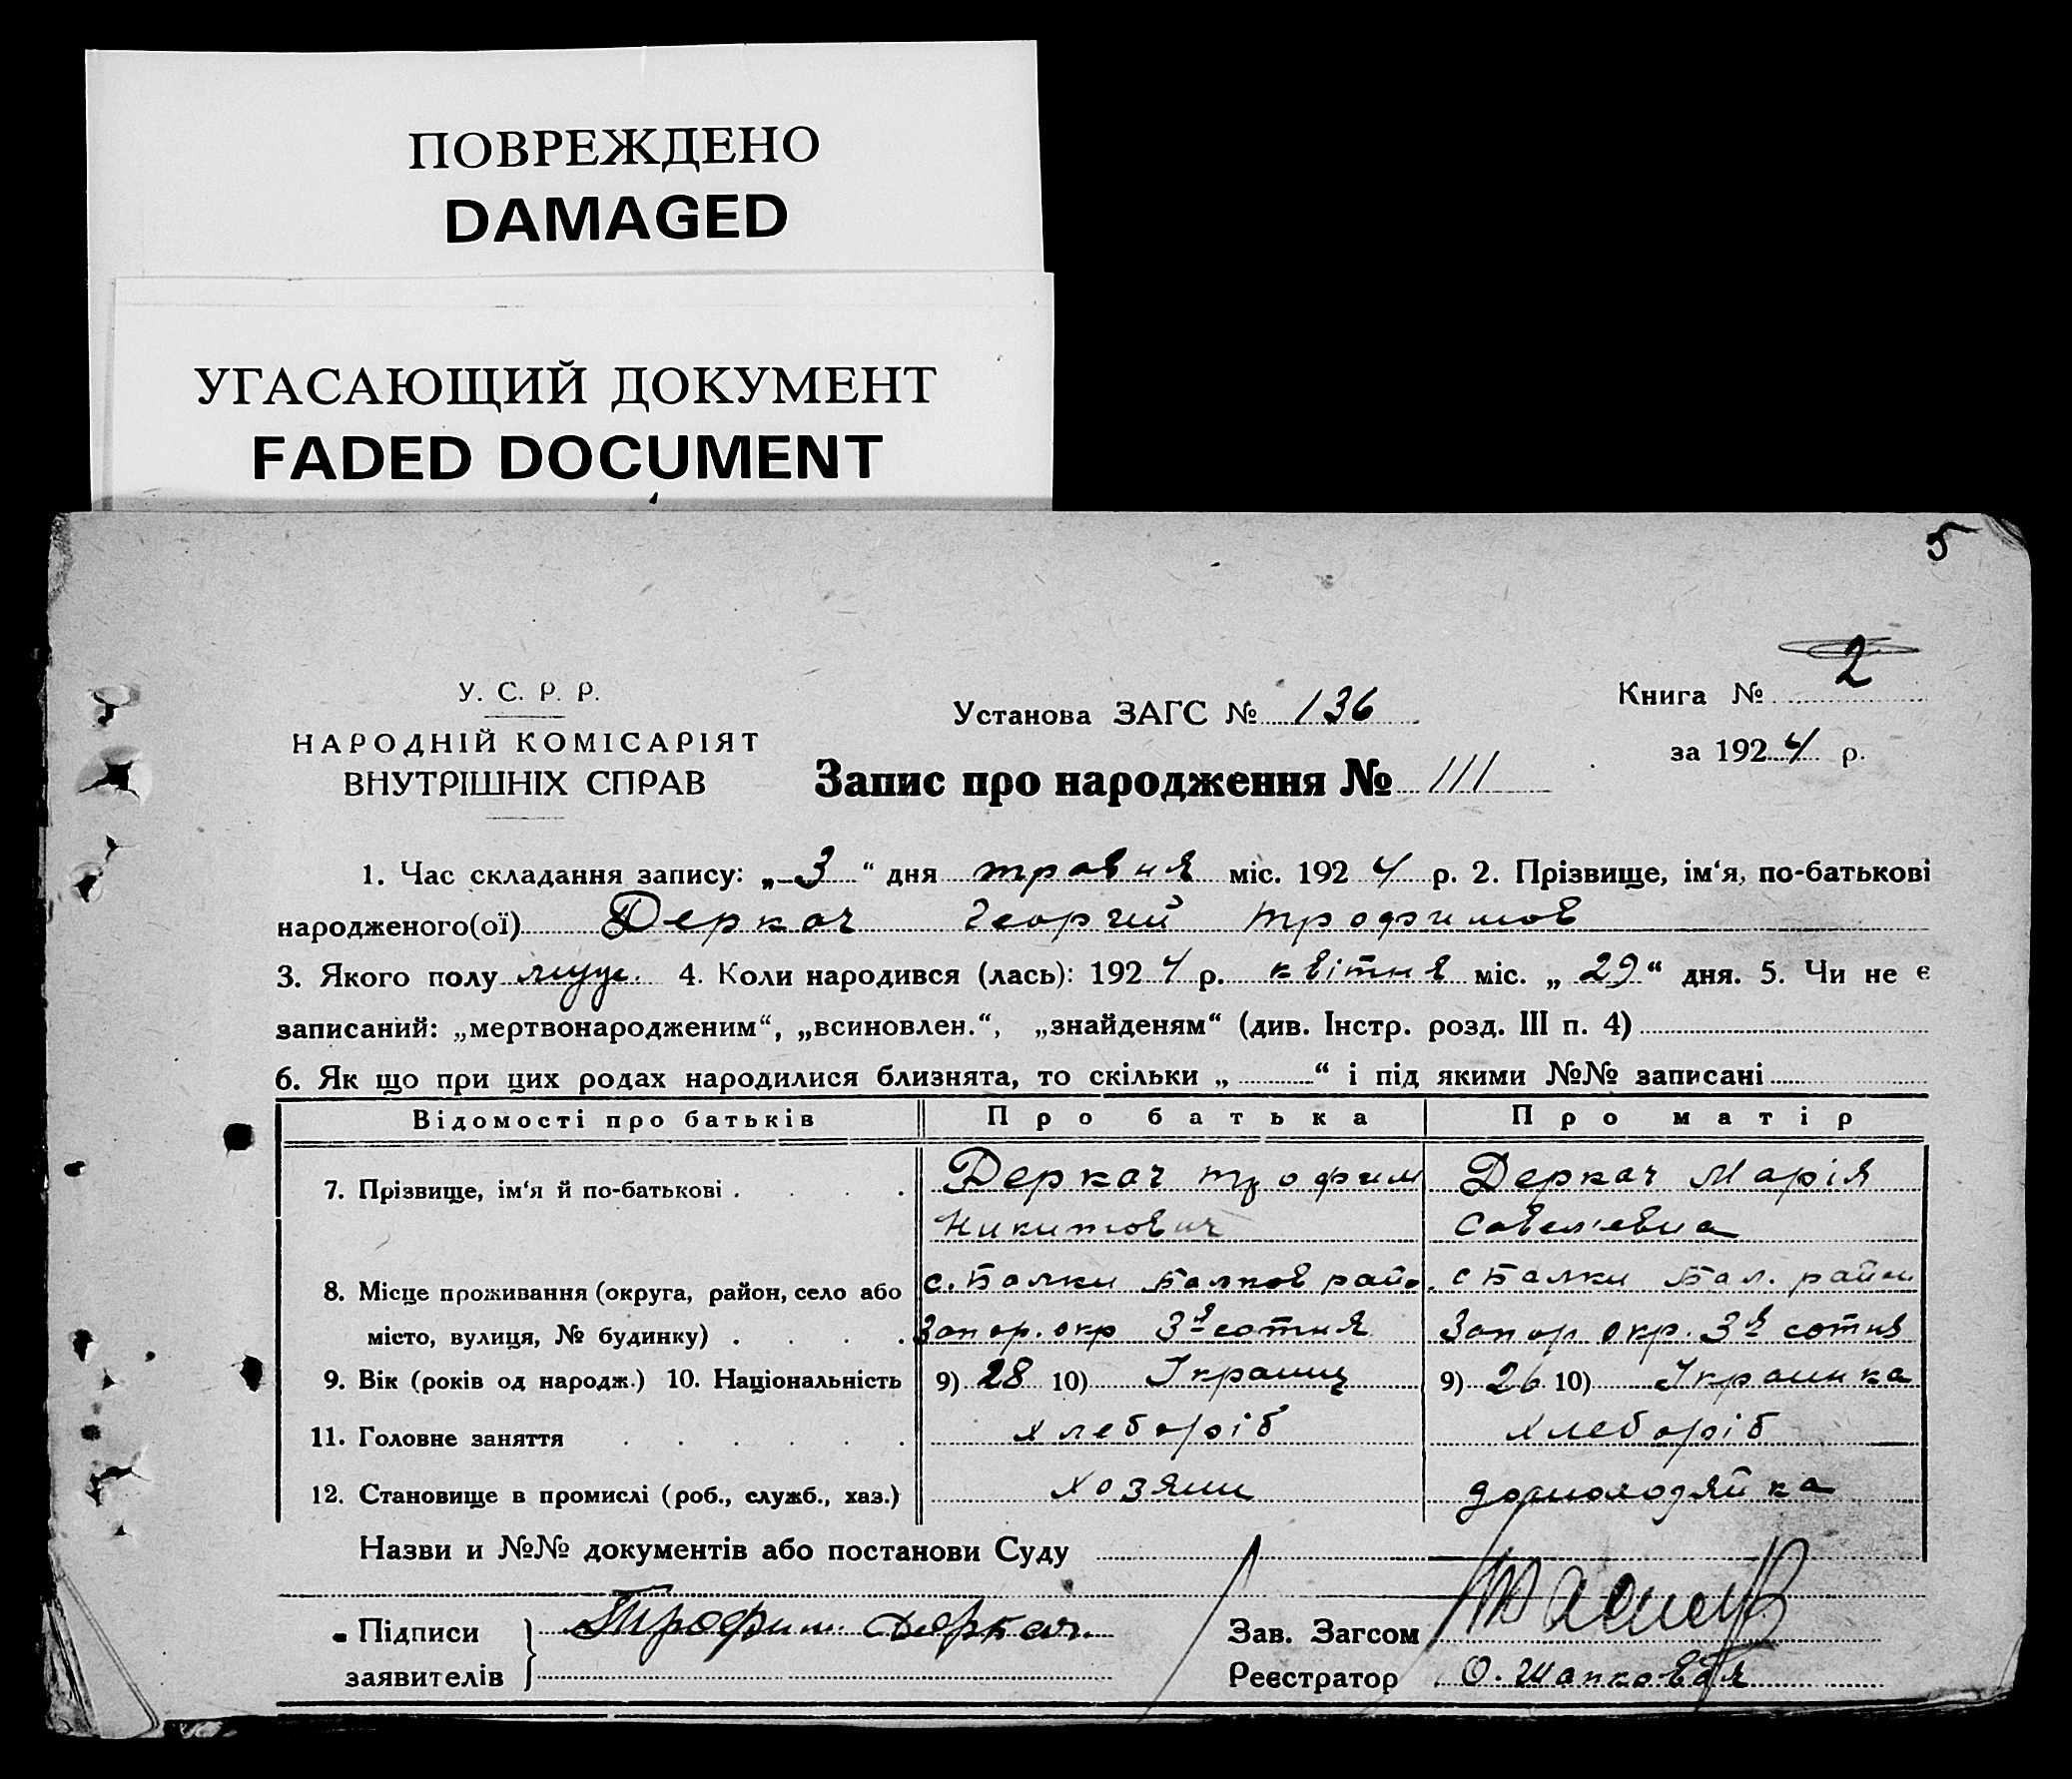 ПОВРЕЖДЕНО
DAMAGED
УГАСАЮЩИЙ ДОКУМЕНТ
FADED DOCUMENT
5
У. С. Р. Р.
НАРОДНІЙ КОМІСАРІЯТ
ВНУТРІШНІХ СПРАВ
Установа ЗАГС № 136
Запис про народження № 111
Книга № 2
за 1924 р.
1. Час складання запису: „3“ дня травня міс. 1924 р. 2. Прізвище, ім‘я, по-батькові
народженого(ої) Деркач Георгий Трофимов
3. Якого полу муж. 4. Коли народився (лась): 1924 р. квітня міс. „29“ дня. 5. Чи не є
записаний: „мертвонародженим“, „всиновлен.“, „знайденям“ (див. Інстр. розд. III п. 4)
6. Як що при цих родах народилися близнята, то скільки „ “ і під якими №№ записані
Відомості про батьків Про батька Про матір
7. Прізвище, ім‘я й по-батькові . . . . Деркач Трофим Деркач Марія
Никитович Савельевна
8. Місце проживання (округа, район, село або с. Балки Балков райо. с Балки Бал. район
місто, вулиця, № будинку) . . . . Запор. окр 3я сотня Запор окр. 3я сотня
9. Вік (років од народж.) 10. Національність 9) 28 10) Украинц 9) 26 10) Украинка
11. Головне заняття . . . . . . хлебороіб хлебороіб
12. Становище в промислі (роб., служб., хаз.) хозяин домохозяйка
Назви и №№ документів або постанови Суду
Підписи Трофим Деркач Зав. Загсом
заявителів Реєстратор О. Шапковая